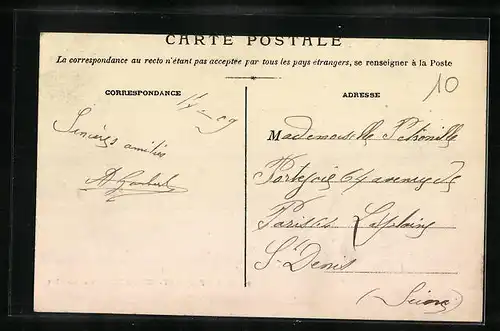 CARTE POSTALE
La correspondance au recto n'étant pas acceptée par tous les pays étrangers, se renseigner à la Poste
10
CORRESPONDANCE
ADRESSE
Sincères amitiés
Mademoiselle Pétronille
64 avenue de
Paris La plaine
St Denis
(Seine)